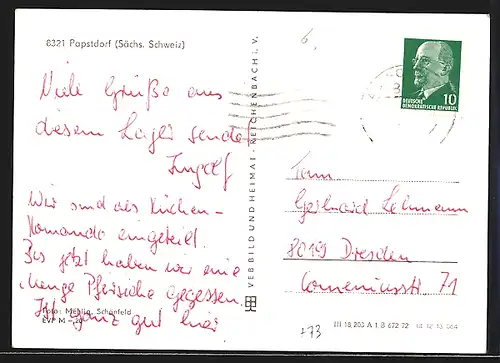 8321 Papstdorf (Sächs. Schweiz)
Viele Grüße aus
diesem Lager sendet
Ingolf
Wir sind als Küchen-
Komando eingeteilt.
Bis jetzt haben wir eine
Menge Pfirsiche gegessen.
Ist ganz gut hier
Foto: Mehlig, Schönfeld
EVP M -,20
VEB BILD UND HEIMAT - REICHENBACH i. V.
6,
DEUTSCHE 10
DEMOKRATISCHE REPUBLIK
Fam.
Gerhard Lehmann
8019 Dresden
Comeniusstr. 71
III 18 203 A 1 B 672 72
+73